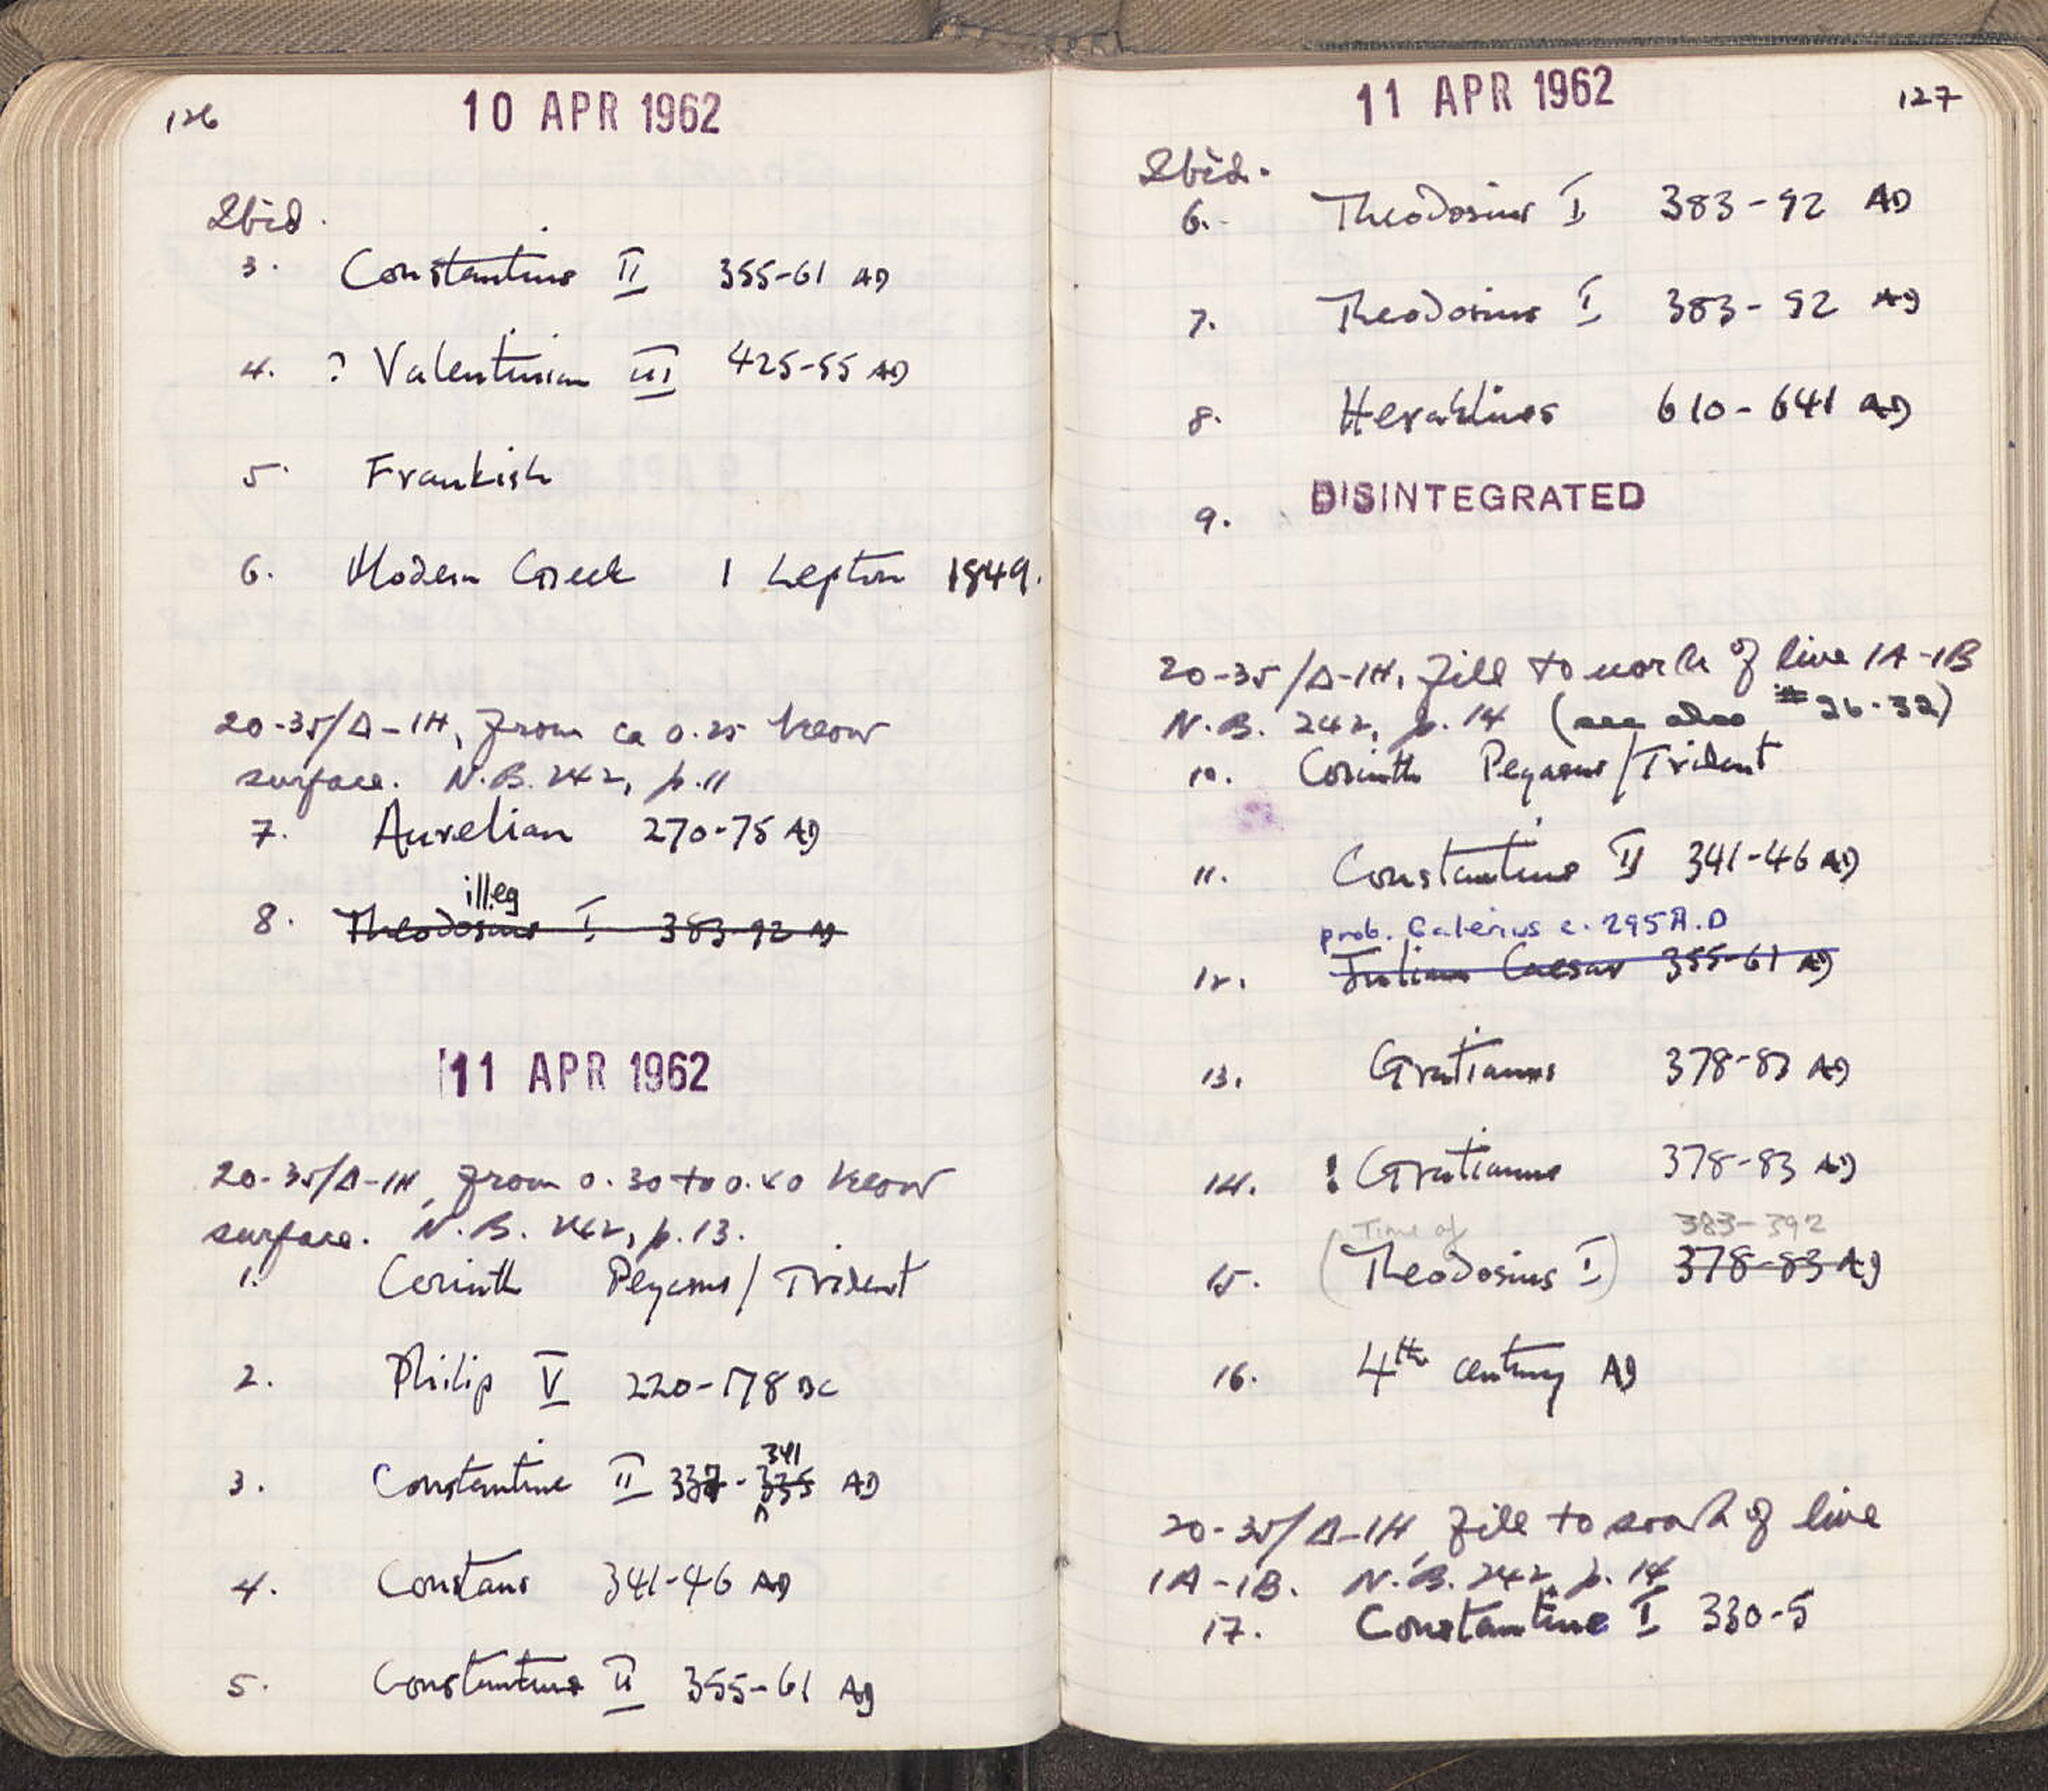 126
10 APR 1962
Ibid.
3. Constantius II 355-61 AD
4. ? Valentinian III 425-55 AD
5. Frankish
6. Modern Greek 1 Lepton 1849.
20-35/Δ-1H, from ca 0.25 below
surface. N.B. 242, p.11
7. Aurelian 270-75 AD
illeg
8. Theodosius I 383-92 AD
11 APR 1962
20-35/Δ-1H, from 0.30 to 0.40 below
surface. N.B. 242, p.13.
1. Corinth Pegasus/Trident
2. Philip V 220-178 BC
341
3. Constantine II 337-335 AD
4. Constans 341-46 AD
5. Constantius II 355-61 AD
11 APR 1962
127
Ibid.
6. Theodosius I 383-92 AD
7. Theodosius I 383-92 AD
8. Heraklius 610-641 AD
9. DISINTEGRATED
20-35/Δ-1H, fill to north of line 1A-1B
N.B. 242, p.14 (see also #26-32)
10. Corinth Pegasus/Trident
11. Constantius II 341-46 AD
prob. Galerius c. 295 A.D
12. Julian Caesar 355-61 AD
13. Gratianus 378-83 AD
14. ! Gratianus 378-83 AD
Time of 383-392
15. (Theodosius I) 378-83 AD
16. 4th century AD
20-35/Δ-1H, fill to south of line
1A-1B. N.B. 242, p.14
17. Constantine I 330-5